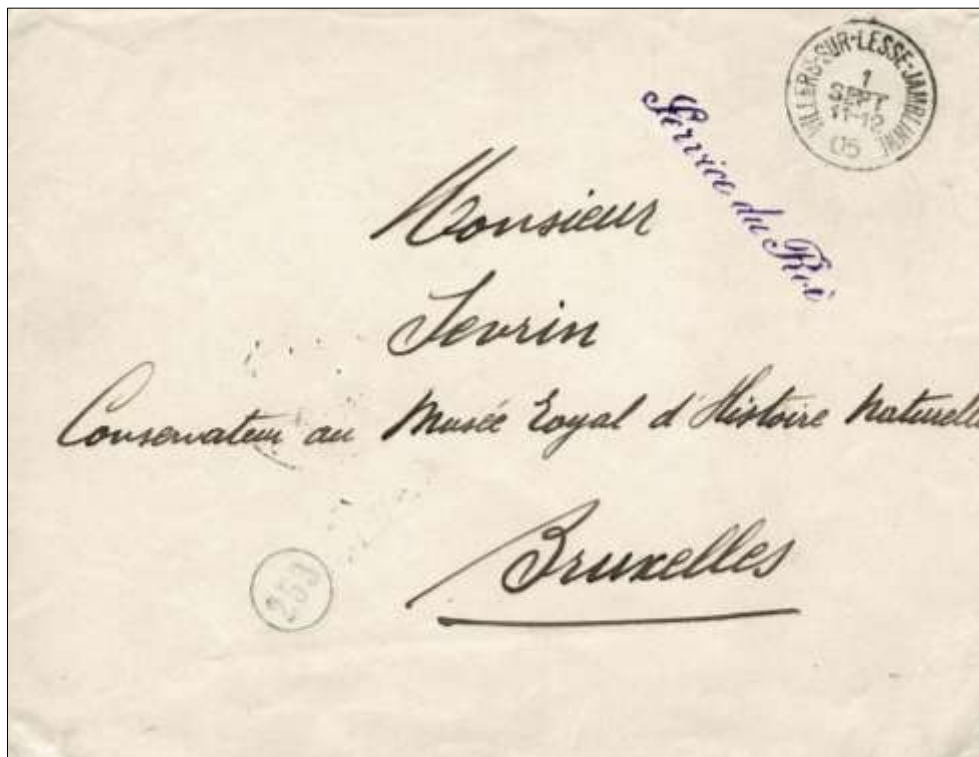 VILLERS-SUR-LESSE-JAMBLINNE
1
SEPT
11-12
05
Service du Roi
Monsieur
Sevrin
Conservateur au Musée Royal d'Histoire Naturelle
Bruxelles
253